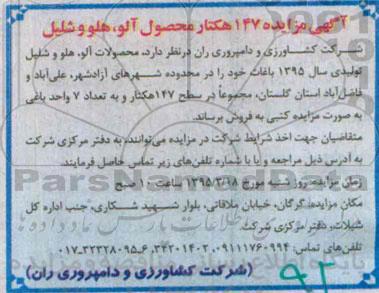 آگهی مزایده ۱۴۷ هکتار محصول آلو، هلو و شلیل
شرکت کشاورزی و دامپروری ران درنظر دارد، محصولات آلو، هلو و شلیل
تولیدی سال ۱۳۹۵ باغات خود را در محدوده شهرهای آزادشهر، علی‌آباد و
فاضل‌آباد استان گلستان، مجموعاً در سطح ۱۴۷هکتار و به تعداد ۷ واحد باغی
به صورت مزایده کتبی به فروش برساند.
متقاضیان جهت اخذ شرایط شرکت در مزایده می‌توانند به دفتر مرکزی شرکت
به آدرس ذیل مراجعه و یا با شماره تلفن‌های زیر تماس حاصل فرمایند.
زمان مزایده: روز شنبه مورخ ۱۳۹۵/۳/۰۸ ساعت ۱۰ صبح
مکان مزایده: گرگان، خیابان ملاقاتی، بلوار شهید شکاری، جنب اداره کل
شیلات، دفتر مرکزی شرکت
تلفن‌های تماس: ۰۹۱۱۱۷۶۰۹۹۴، ۳۴۲۰۱۴۰۲، ۶-۳۲۳۲۸۰۹۵-۰۱۷
(شرکت کشاورزی و دامپروری ران)
۹۲
ParsNamadData